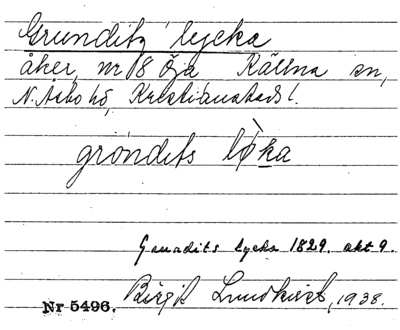 Grunditz lycka
åker, nr 8 Öja Källna sn,
N. Åsbo hd, Kristianstads l.
gröndits løka
Granadits lycka 1829. akt 9.
Nr 5496. Birgit Lundkvist, 1938.